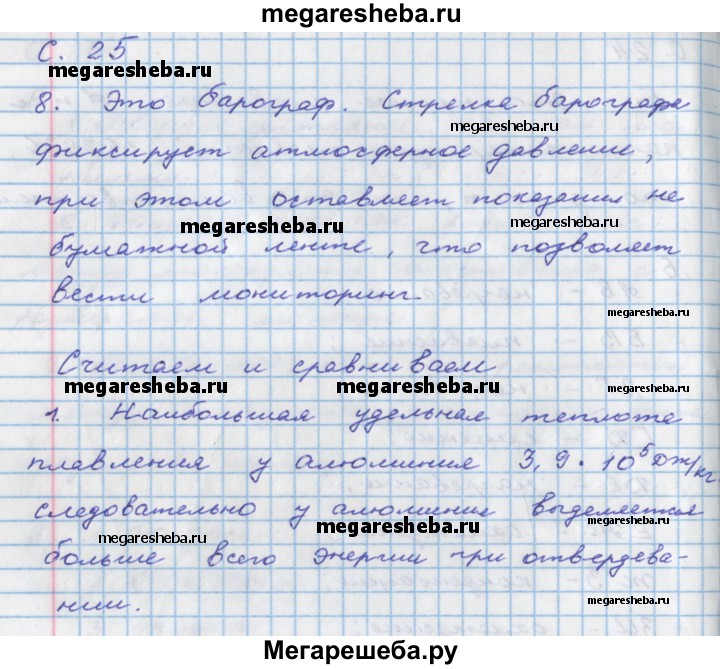 megaresheba.ru
С. 25
megaresheba.ru
8. Это барограф. Стрелка барографа
megaresheba.ru
фиксирует атмосферное давление,
при этом оставляет показания не
megaresheba.ru
megaresheba.ru
бумажной ленте, что позволяет
вести мониторинг.
megaresheba.ru
Считаем и сравниваем
megaresheba.ru
megaresheba.ru
megaresheba.ru
1. Наибольшая удельная теплота
плавления у алюминия 3,9 · 10⁵ Дж/кг
megaresheba.ru
следовательно у алюминие выделяется
megaresheba.ru
megaresheba.ru
больше всего энергии при отвердева-
нии.
megaresheba.ru
Мегарешеба.ру